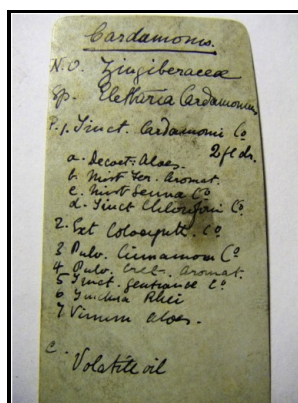 Cardamoms.
N.O. Zingiberaceæ
Sp. Elettaria Cardamomum
P. 1. Tinct. Cardamomi Co
2 fl drs.
a. Decoct. Aloes.
b. Mist Fer. Aromat.
c. Mist Senna Co
d. Tinct Chlorofori Co.
2. Ext Colocynth. Co
3 Pulv. Cinnamom Co
4 Pulv. Cret. Aromat.
5 Tinct. Gentianæ Co.
6 Tinctura Rhei
7 Vinum Aloes.
C.
Volatile oil